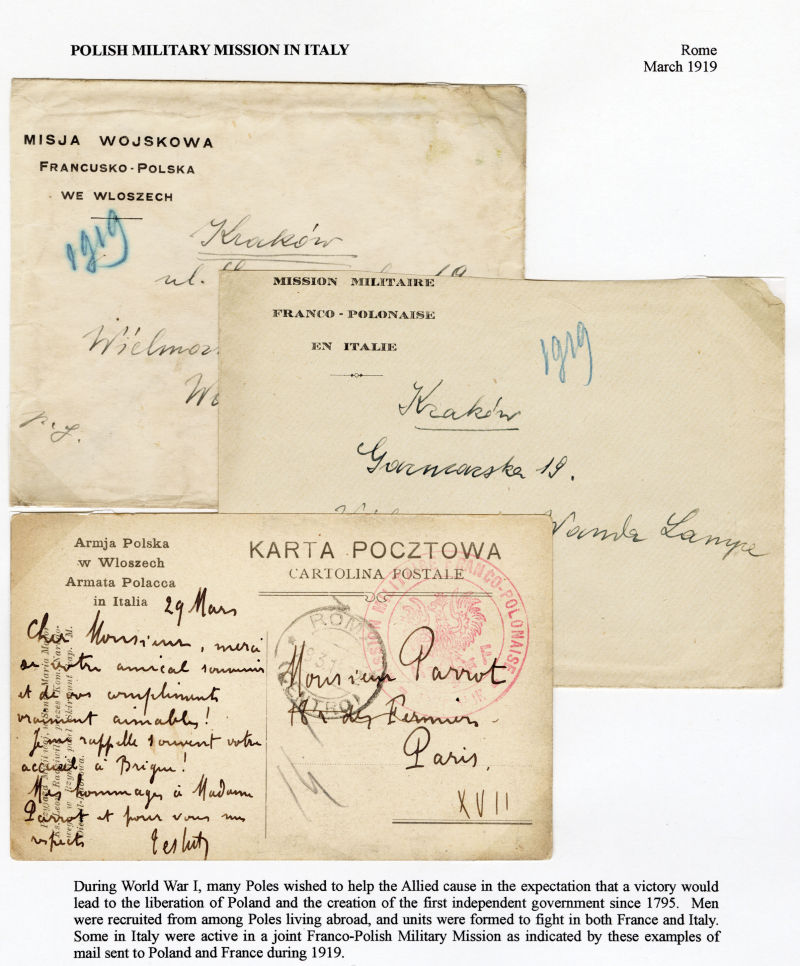 POLISH MILITARY MISSION IN ITALY
Rome
March 1919
MISJA WOJSKOWA
FRANCUSKO-POLSKA
WE WLOSZECH
1919
Kraków
ul. 19
Wielmoż
p. z.
MISSION MILITAIRE
FRANCO-POLONAISE
EN ITALIE
1919
Kraków
Garncarska 19.
Wanda Lampe
Armja Polska
w Wloszech
Armata Polacca
in Italia
KARTA POCZTOWA
CARTOLINA POSTALE
29 Mars
Cher Monsieur, merci
de votre amical souvenir
et de vos compliments
vraiment aimables!
Je me rappelle souvent votre
accueil à Brigue!
Mes hommages à Madame
Parrot et pour vous mes
respects
ROMA
CENTRO
MILITAIRE FRANCO-POLONAISE
Monsieur Parrot
18 r des Fermiers
Paris.
XVII
14
During World War I, many Poles wished to help the Allied cause in the expectation that a victory would
lead to the liberation of Poland and the creation of the first independent government since 1795. Men
were recruited from among Poles living abroad, and units were formed to fight in both France and Italy.
Some in Italy were active in a joint Franco-Polish Military Mission as indicated by these examples of
mail sent to Poland and France during 1919.